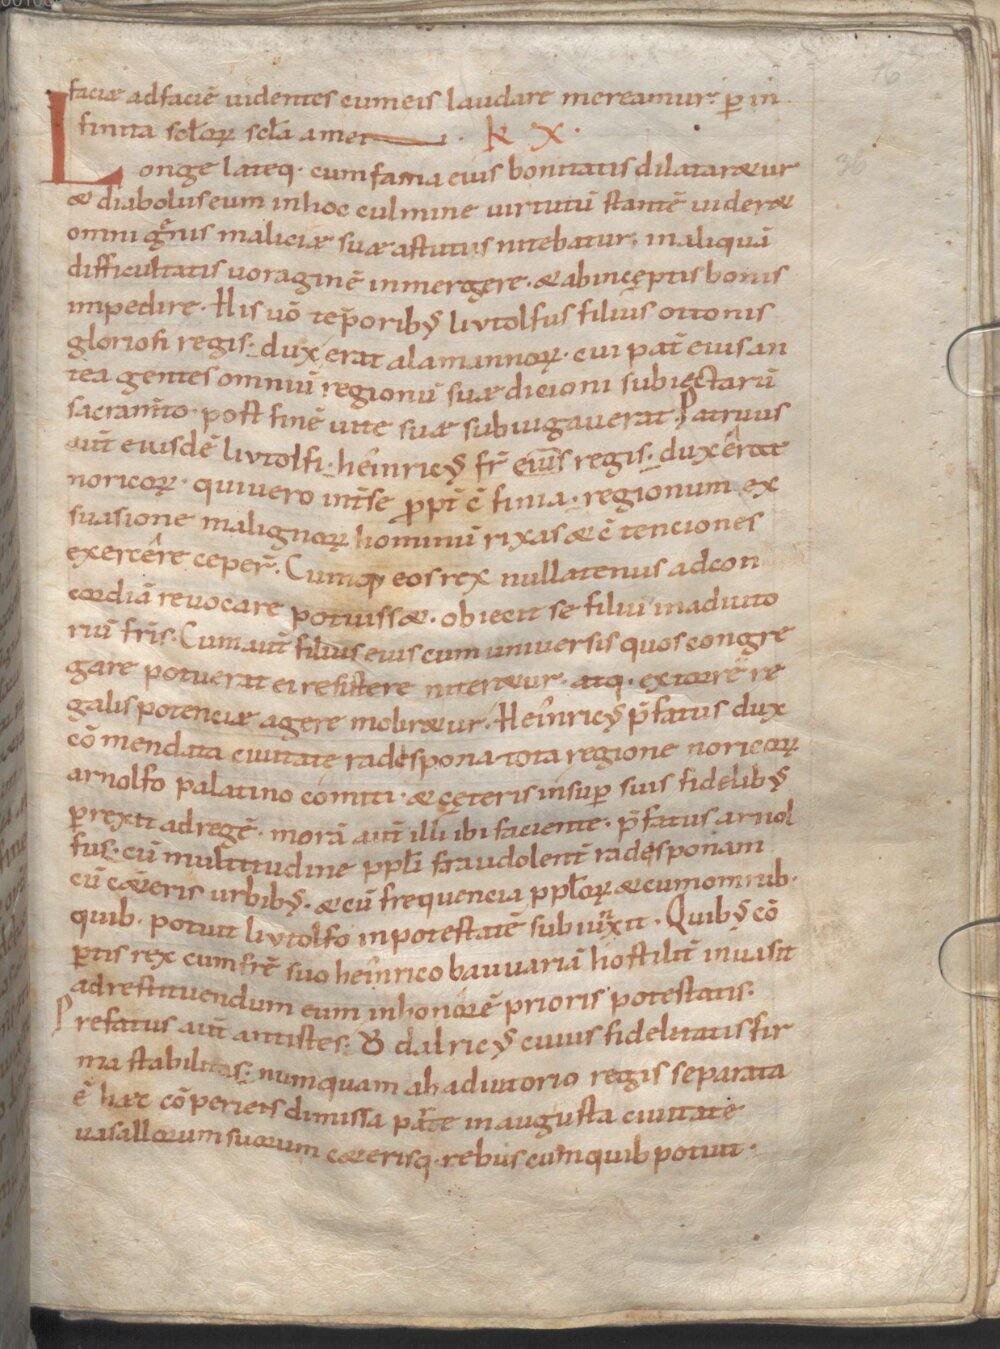 faciæ adfaciē uidentes eumeis laudare mereamur. p̄ in
finita sc̄lorꝝ sc̄la amen. k x.
Longe lateq. cumfama eius bonitatis dilatar&ur
& diabolus eum inhoc culmine uirtutū stantē uider&
omni gn̄is maliciæ suæ astutus nitebatur. inaliquā
difficultatis uoraginē inmergere. & abincęptis bonis
impedire. His uō tēporibꝫ liutolfus filius ottonis
gloriosi regis. dux erat alamannorꝝ. cui pat̄ eius an
tea gentes omniū regionū suæ dicioni subiectarū
sacram̄to. post finē uite suæ subiugauerat. Patruus
aut̄ eiusdē liutolfi. heinricꝫ fr̄ eius regis. dux erat
noricorꝝ. qui uero int̄se ꝓpt̄ c̄finia. regionum ex
suasione malignorꝝ hominū rixas & c̄tenciones
exercere ceper̄. Cumq; eos rex nullatenus adcon
cordiā reuocare potuiss&. obiecit se filiū inadiuto
riū fr̄is. Cum aut̄ filius eius cum uniuersis quos congre
gare potuerat ei resistere niter&ur. atq. extorrē re
galis potenciæ agere molir&ur. Heinricꝫ p̄fatus dux
cōmendata ciuitate radespona tota regione noricorꝝ
arnolfo palatino comiti. & cęteris insup̄ suis fidelibꝫ
p̄rexit adregē. morā aut̄ illi ibi faciente. p̄fatus arnol
fus. cū multitudine pp̄li fraudolent̄ radesponam
cū c&eris urbibꝫ. & cū frequencia pp̄lorꝝ & cumomnib.
quib. potuit liutolfo inpotestatē subiunxit. Quibꝫ cō
p̄tis rex cumfrē suo heinrico bauuariā hostilit̄ inuasit
adrestituendum eum inhonorē prioris potestatis.
Prefatus aut̄ antistes. Ȯdalricꝫ cuius fidelitatis fir
ma stabilitas. numquam ab adiutorio regis separata
ē hæc cōperiens dimissa parte inaugusta ciuitate
uasallorum suorum c&erisq. rebus cumquib potuit.